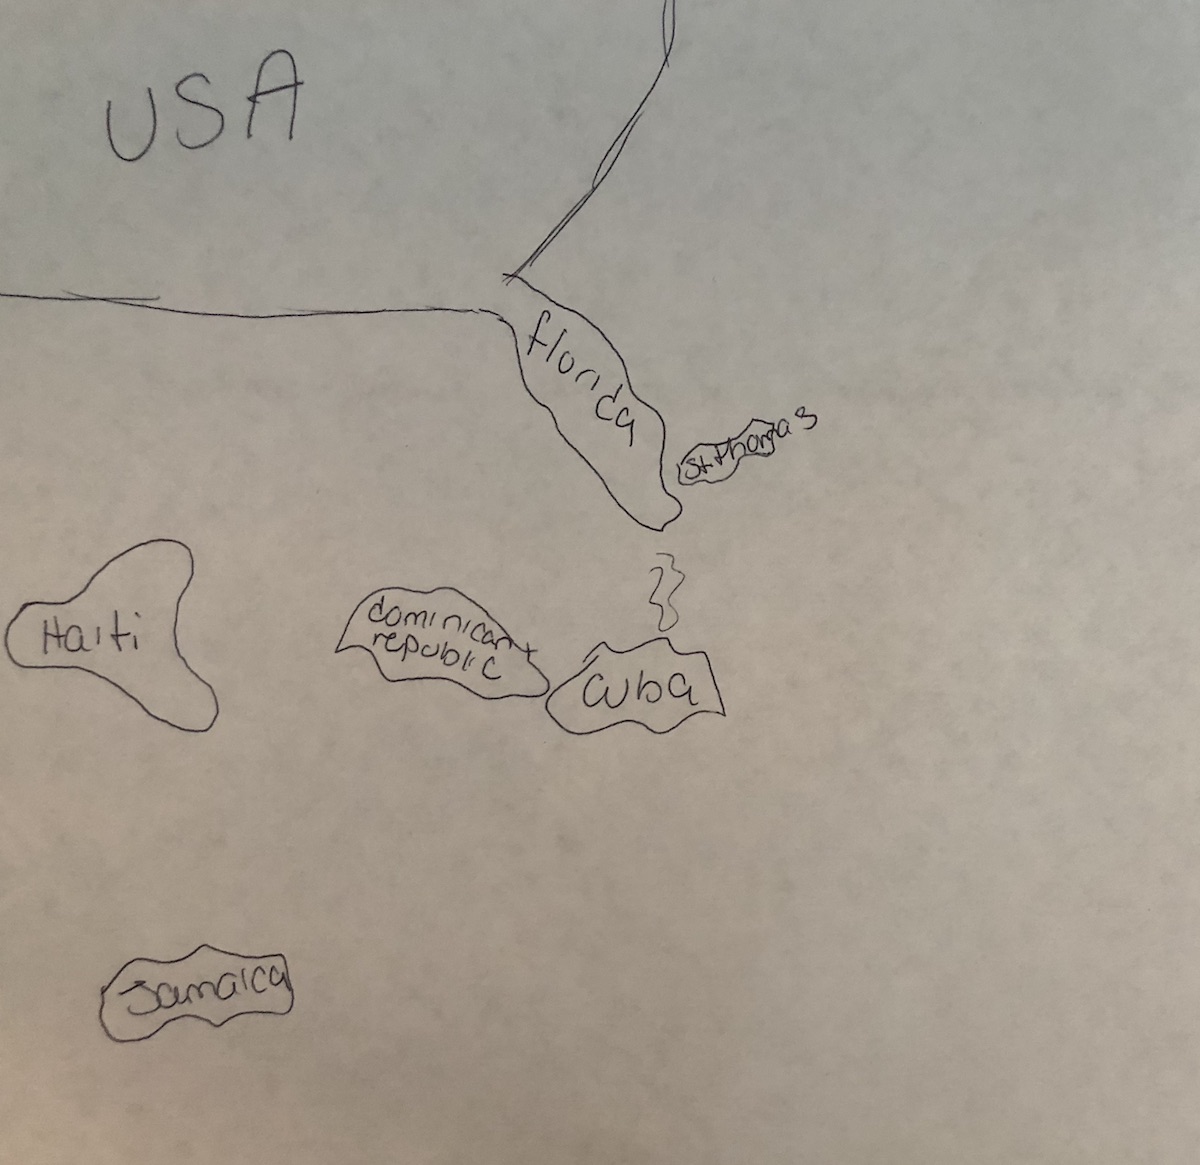 USA
florida
St Thomas
Haiti
dominican
republic
Cuba
Jamaica